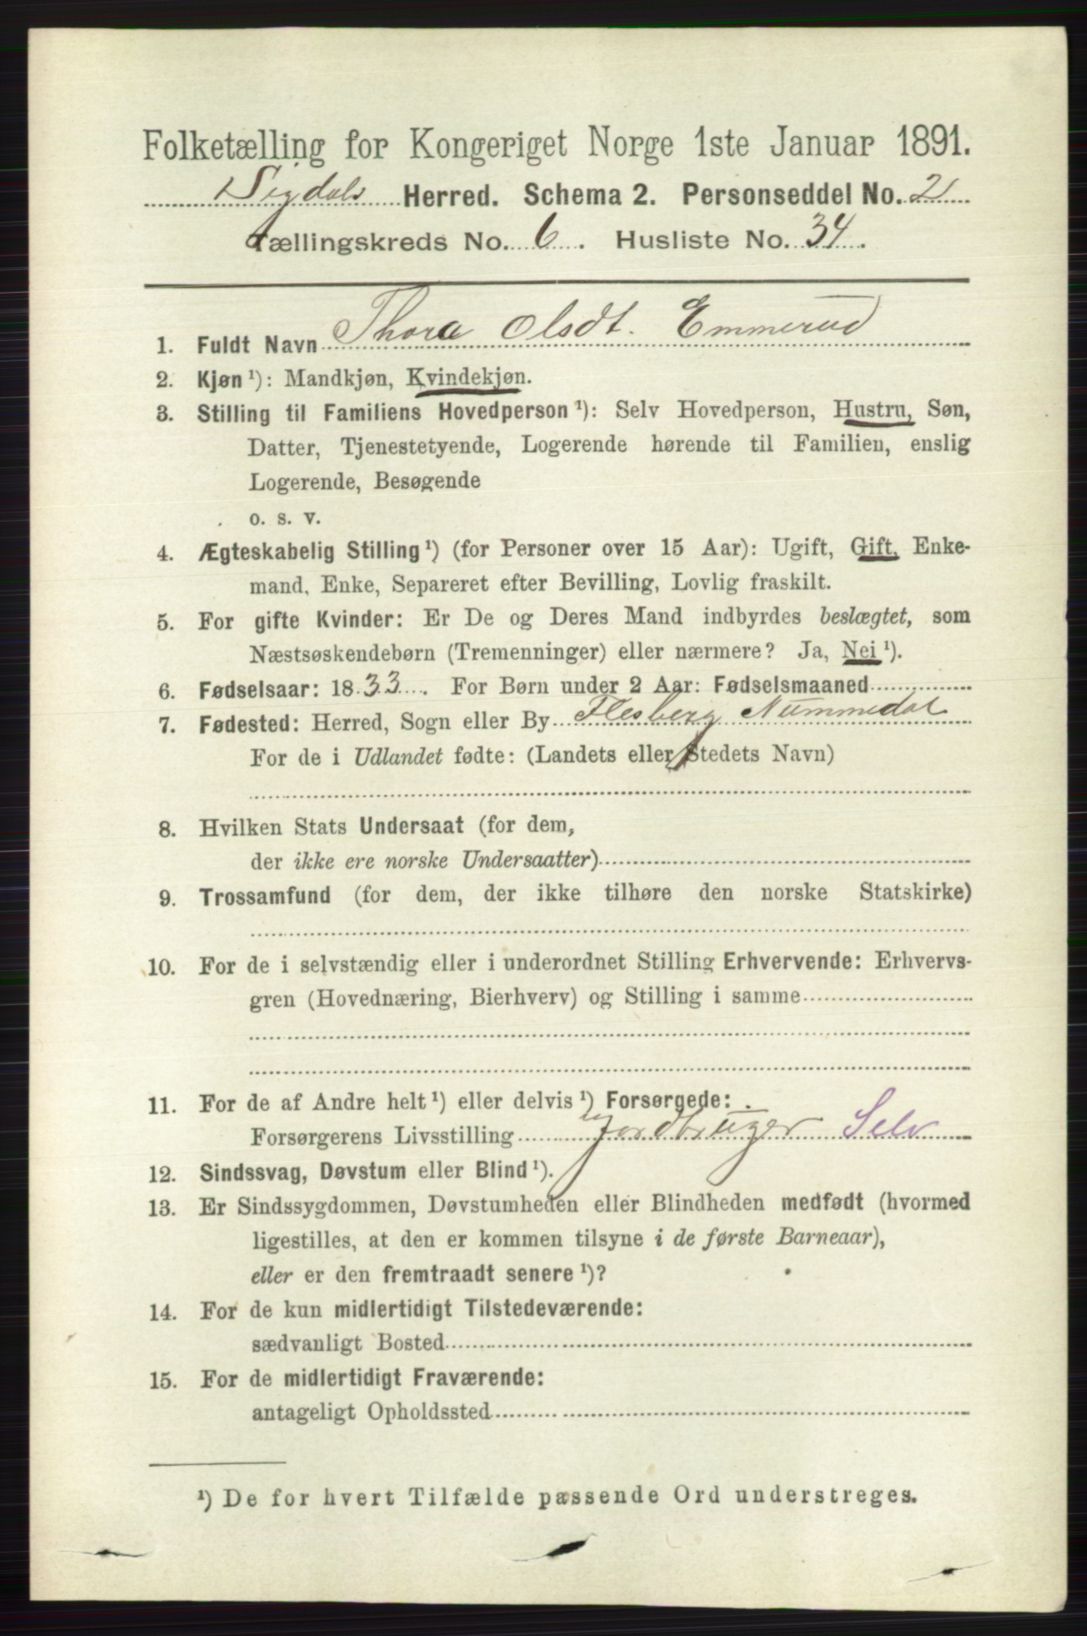 Folketælling for Kongeriget Norge 1ste Januar 1891.
Sigdals Herred. Schema 2. Personseddel No. 2
Tællingskreds No. 6. Husliste No. 34.
1. Fuldt Navn Thora Olsdt. Emmerud
2. Kjøn ¹): Mandkjøn, Kvindekjøn.
3. Stilling til Familiens Hovedperson ¹): Selv Hovedperson, Hustru, Søn,
Datter, Tjenestetyende, Logerende hørende til Familien, enslig
Logerende, Besøgende
o. s. v.
4. Ægteskabelig Stilling ¹) (for Personer over 15 Aar): Ugift, Gift, Enke-
mand, Enke, Separeret efter Bevilling, Lovlig fraskilt.
5. For gifte Kvinder: Er De og Deres Mand indbyrdes beslægtet, som
Næstsøskendebørn (Tremenninger) eller nærmere? Ja, Nei ¹).
6. Fødselsaar: 1833. For Børn under 2 Aar: Fødselsmaaned
7. Fødested: Herred, Sogn eller By Flesberg Nummedal
For de i Udlandet fødte: (Landets eller Stedets Navn)
8. Hvilken Stats Undersaat (for dem,
der ikke ere norske Undersaatter)
9. Trossamfund (for dem, der ikke tilhøre den norske Statskirke)
10. For de i selvstændig eller i underordnet Stilling Erhvervende: Erhvervs-
gren (Hovednæring, Bierhverv) og Stilling i samme
11. For de af Andre helt ¹) eller delvis ¹) Forsørgede:
Forsørgerens Livsstilling Jordbruger Selv
12. Sindssvag, Døvstum eller Blind ¹).
13. Er Sindssygdommen, Døvstumheden eller Blindheden medfødt (hvormed
ligestilles, at den er kommen tilsyne i de første Barneaar),
eller er den fremtraadt senere ¹)?
14. For de kun midlertidigt Tilstedeværende:
sædvanligt Bosted
15. For de midlertidigt Fraværende:
antageligt Opholdssted
¹) De for hvert Tilfælde passende Ord understreges.